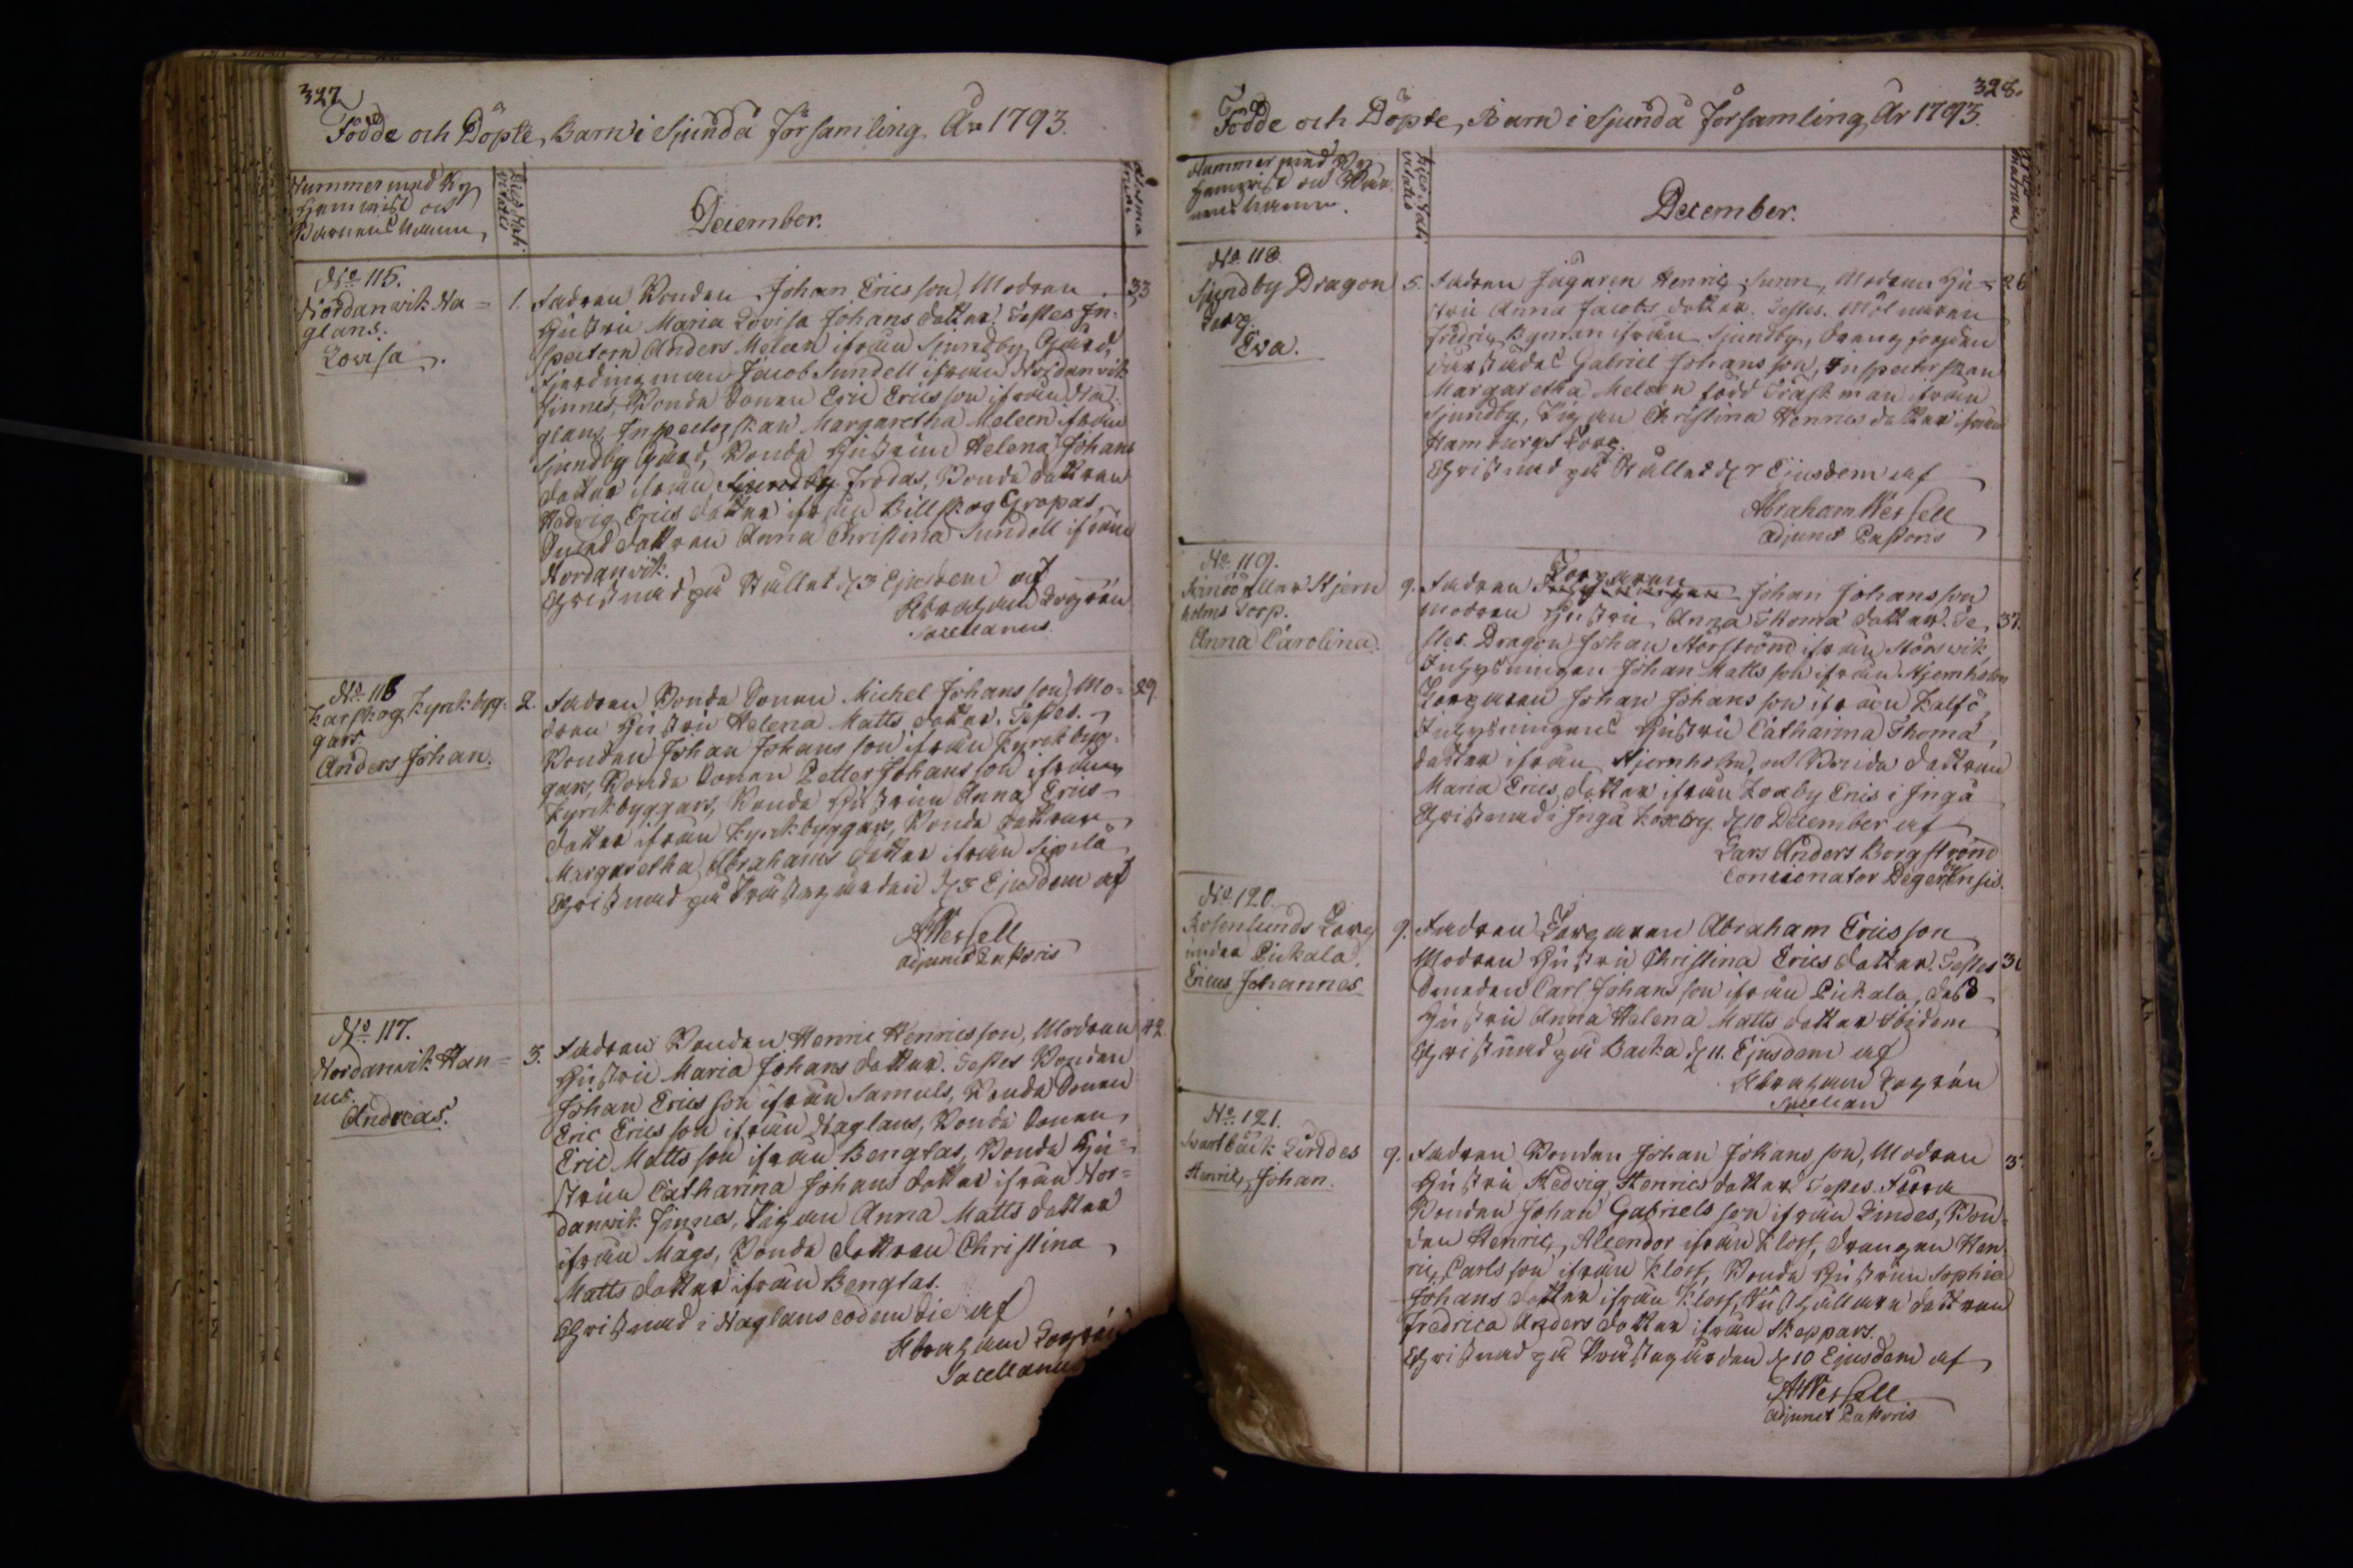 327
Födde och Döpte, Barn i Sjundå Församling. År 1793.
Nummer med By
Hemvist och
Barnens Namn,
Dies Nati-
vitatis
December.
No 115.
Nordanwik Na=
glans.
Lovisa.
1.
33
Fadren Bonden Johan Ericsson, Modren
Hustru Maria Lovisa Johans dotter. Testes In-
spectorn Anders Meleen ifrån Sjundby Gård,
Fjerdingsman Jacob Sundell ifrån Nordanvik
Finnes, Bonde Sonen Eric Ericsson ifrån Na-
glans, Inspectorskan Margaretha Meleen ifrån
Sjundby Gård, Bonde Hustrun Helena Johans
dotter ifrån Sjundby Frodas, Bonde dottren
Hedvig Erics dotter ifrån Billskog Gropas,
dottren Anna Christina Sundell ifrån
Nordanvik.
Christnad på Stället d 3 Ejusdem af
Abraham Logrén
Sacellanus.
No 116
Karskog Kyrkbyg-
gars
Anders Johan.
2.
29.
Fadren Bonde Sonen Michel Johansson, Mo=
dren Hustru Helena Matts dotter. Testes.
Bonden Johan Johansson ifrån Kyrkbyg-
gars, Bonde Sonen Petter Johansson ifrån
Kyrkbyggars, Bonde Hustrun Anna Erics
dotter ifrån Kyrkbyggars, Bonde dottren
Margaretha Abrahams dotter ifrån Sipilä
Christnad på Prästegården d 3 Ejusdem af
AWessell
Adjunct Pastoris
No 117.
Nordanvik Han=
nus.
Andreas.
3.
42
Fadren Bonden Henric Henricsson, Modren
Hustru Maria Johans dotter. Testes Bonden
Johan Ericsson ifrån Samuls, Bonde Sonen
Eric Ericsson ifrån Naglans, Bonde Sonen
Eric Mattsson ifrån Bengtas, Bonde Hu=
strun Catharina Johans dotter ifrån Nor=
danvik Finnes, Pigan Anna Matts dotter
ifrån Mågs, Bonde dottren Christina
Matts dotter ifrån Bengtas.
Christnad i Naglans eodem die af
Abraham Logrén
Sacellanus
328.
Födde och Döpte, Barn i Sjundå Församling År 1793.
Nummer med By
Hemvist och Bar-
nens Namn.
Dies Nati
vitatis
December.
No 118.
Sjundby Dragon
Torp
Eva.
5.
26
Fadren Jägaren Henric Sunn, Modren Hu=
stru Anna Jacobs dotter. Testes. Mölnaren
Fredric Byman ifrån Sjundby, Dreng
därstädes Gabriel Johansson, Inspectorskan
Margaretha Meleen född Träskman ifrån
Sjundby, Pigan Christina Henrics dotter ifrån
Hamburgs Torp.
Christnad på Stället d 7 Ejusdem af
Abraham Wessell
Adjunct Pastoris
No 119.
Hjern
holms Torp.
Anna Carolina.
9.
37.
Fadren Torparen Johan Johansson
Modren Hustru Anna Thoma dotter. Te
stes. Dragon Johan Storström ifrån Störsvik,
Inhysningen Johan Mattsson ifrån Hjernholm
Torparen Johan Johansson ifrån Kalfö,
Inhysningens Hustru Catharina Thoma
dotter ifrån Hjernholm, och Bonde dottren
Maria Erics dotter ifrån Koxby Eris i Ingå
Christnad i Ingå Koxby d 10 December af
Lars Anders Borgström
Concionator Degeröensis.
No 120.
Rosenlunds Torp
under Pickala.
Ericus Johannes
9.
Fadren Torparen Abraham Ericsson
Modren Hustru Christina Erics dotter. Testes
Carl Johansson ifrån Pickala, dess
Hustru Anna Helena Matts dotter ibidem
Christnad på Backa d 11. Ejusdem af
Abraham Logrén
Sacellan
No 121.
Svartbäck Lindes
Henric Johan.
9.
Fadren Bonden Johan Johansson, Modren
Hustru Hedvig Henrics dotter Testes. Förra
Bonden Johan Gabrielsson ifrån Lindes, Bon=
den Henric Alcendor ifrån Kloss, Drengen Hen
ric Carlsson ifrån Kloss, Bonde Hustrun Sophia
Johans dotter ifrån Kloss, Rusthållare dottren
Fredrica Anders dotter ifrån Skeppars.
Christnad på Prästegården d 10 Ejusdem af
AWessell
Adjunct Pastoris